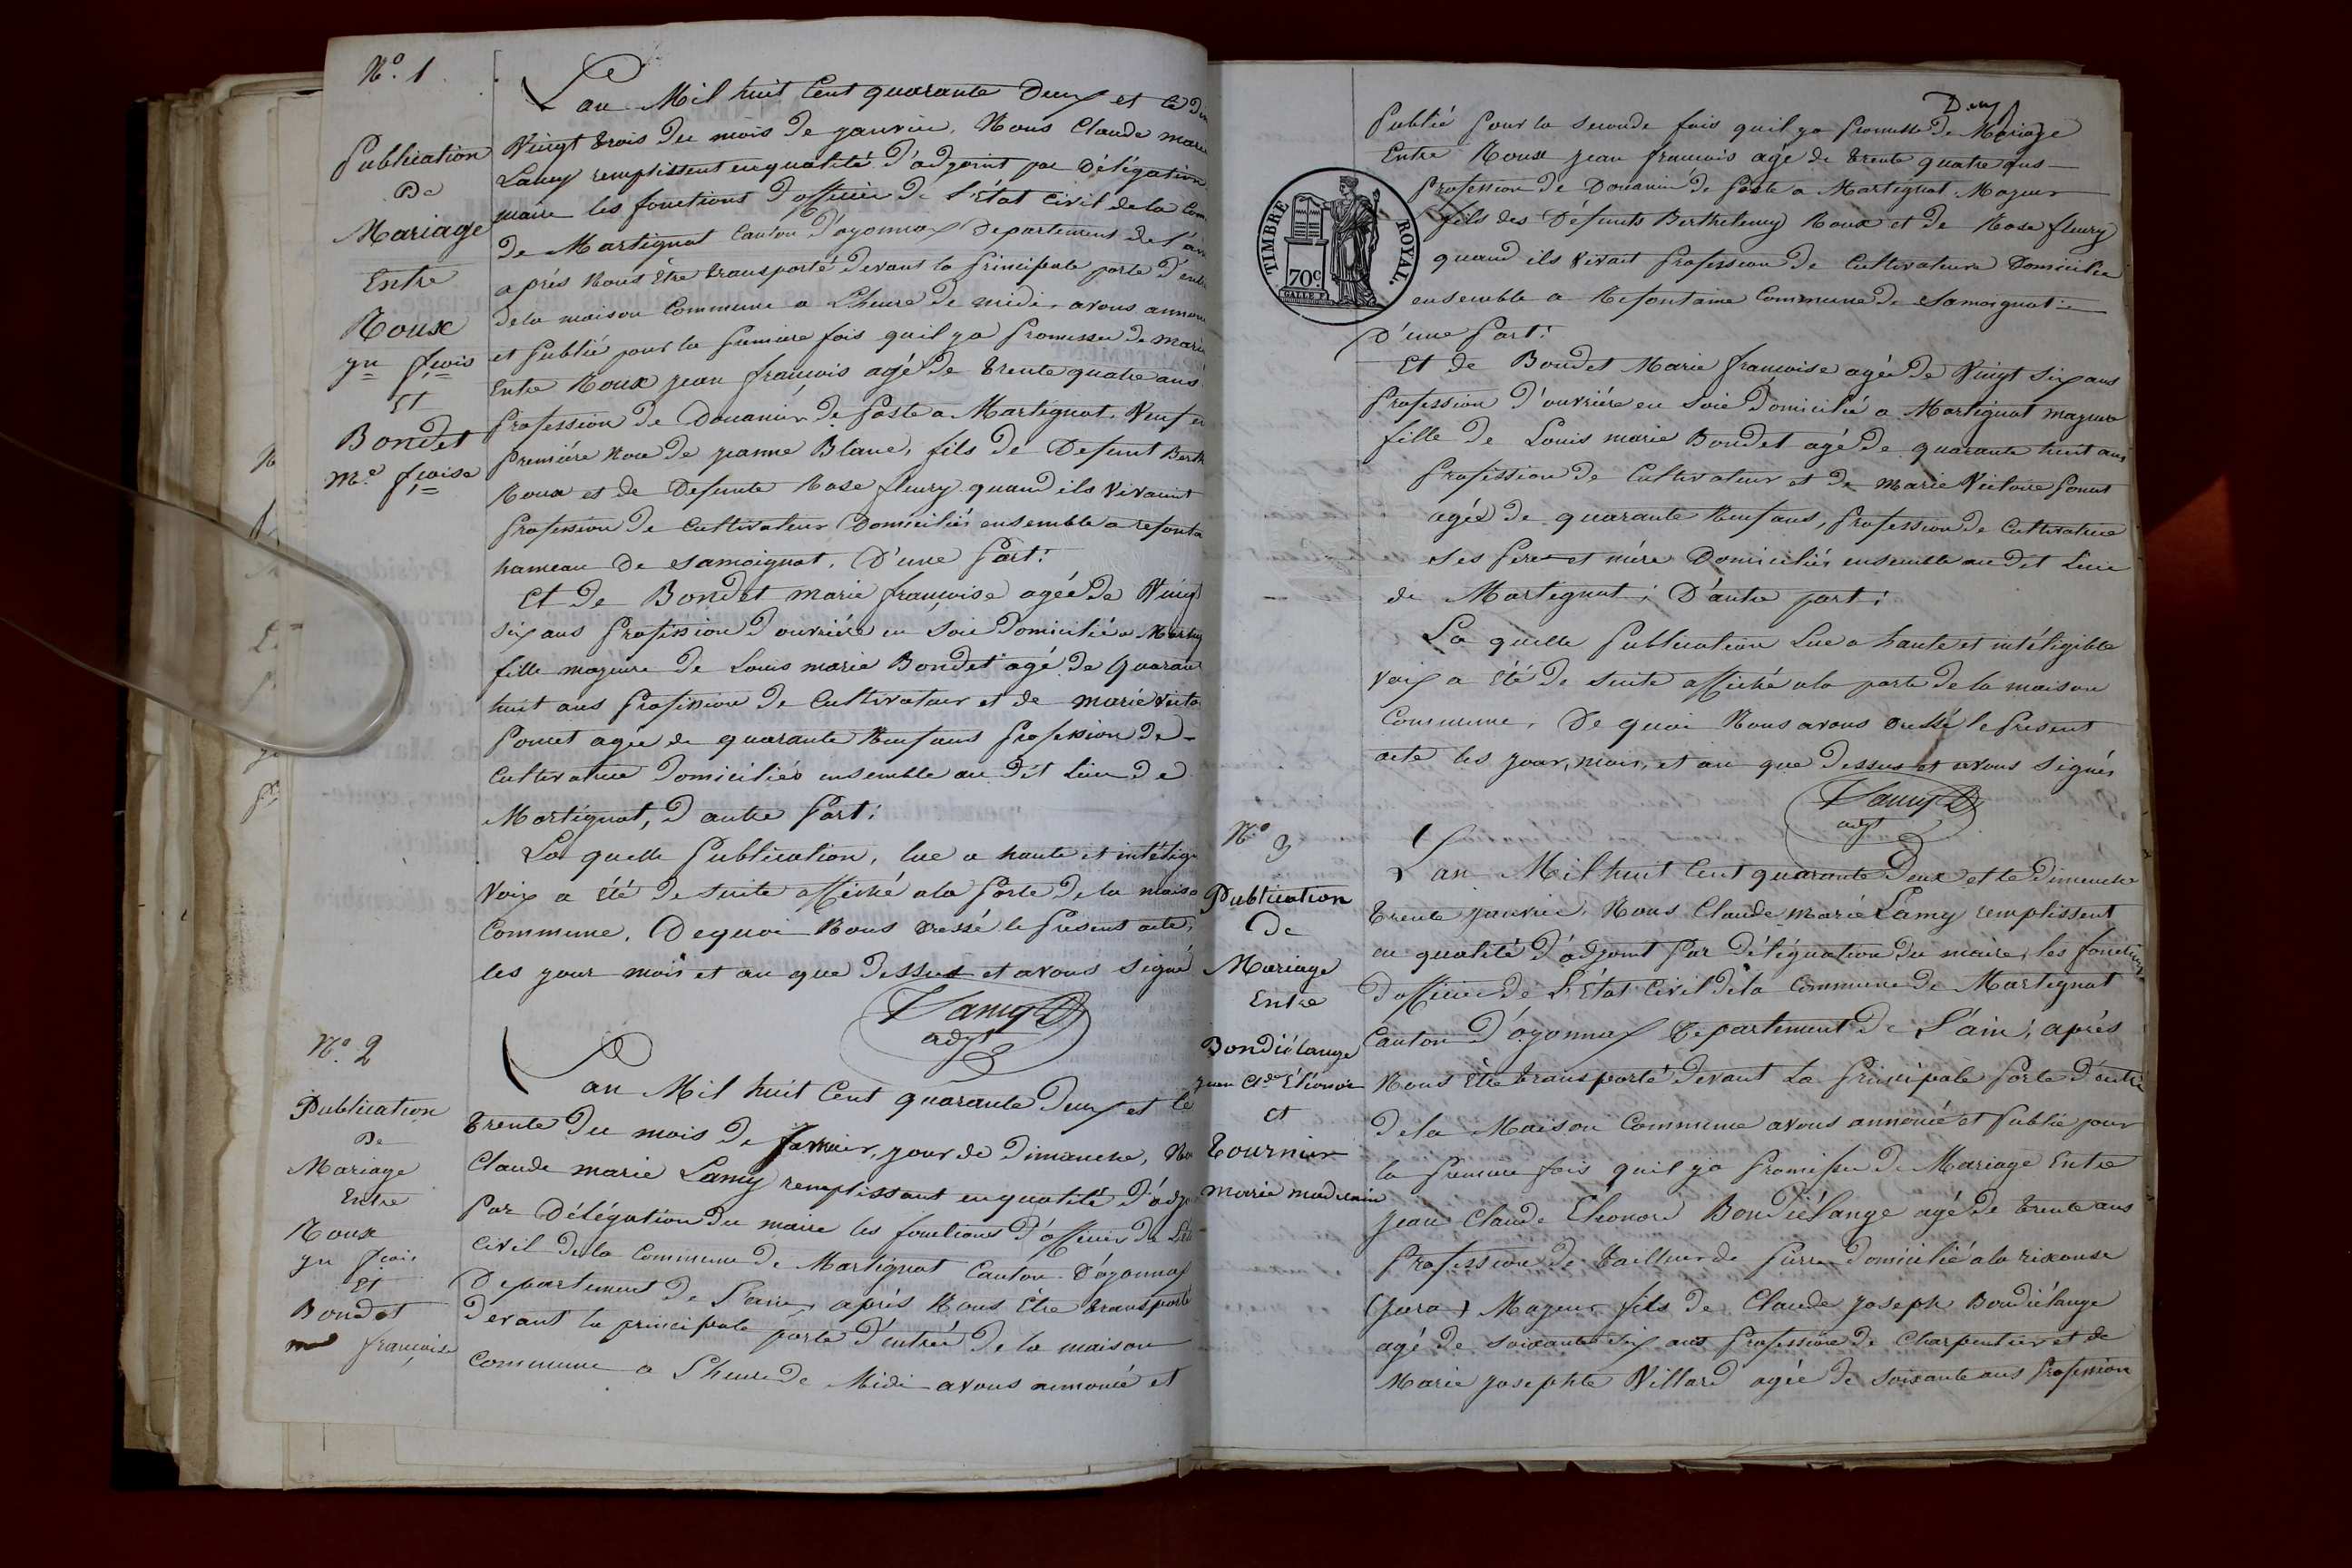 N.º 1
Publication
De
Mariage
Entre
Roux
jn fcois
Et
Bondet
m.e fcoise
Lan Mil huit Cent quarante Deux et le
Vingt trois du mois de janvier, Nous Claude marie
Lamy remplissent en qualité d'adjoint par Délégation
maire les fonctions d'officier de L'Etat Civil de la Com
de Martignat Canton d'oyonnax Departement de l'ain
après Nous Être transporté devant la principale porte d'entr
de la maison Commune a L'heure de midi, avons annon
et Publié pour la premiere fois quil ya promesse de mari
Entre Roux jean francois agé de trente quatre ans
Profession de Douanier de Poste a Martignat, Veuf en
Première Noce de jeanne Blanc, fils de Defunt Berth
Roux et de Defunte Rose fleury quand ils Vivaint
Profession de Cultivateur Domiciliés ensemble a refonta
hameau de Samoignat, D'une Part:
Et de Bondet marie françoise agée de Vingt
six ans Profession D'ouvrière en Soie Domicilié a Martig
fille majeure de Louis marie Bondet agé de Quaran
huit ans Profession de Cultivateur et de marie Victo
Ponet agée de quarante Neuf ans Profession De
Cultivatrice Domiciliés ensemble au dit Lieu de
Martignat, D'autre Part:
La quelle Publication, lue a haute et intélig
Voix a été de suite affiché a la Porte de la maiso
Commune. De quoi Nous Dressé le Présent acte,
les jour mois et an que Dessus et avons signé
Lamy
adjt
N.º 2
Publication
De
Mariage
Entre
Roux
jn fcois
Et
Bondet
françoise
Lan Mil huit Cent quarante Deux et le
Trente Du mois de janvier, jour de Dimanche, No
Claude marie Lamy remplissant en qualité d'adjo
Par Délégation du maire les fonctions d'officier de L'Et
Civil de la Commune de Martignat Canton D'oyonnax
Departement de L'ain, après Nous Être transporté
Devant la principale porte d'entrée de la maison
Commune a L'heure de Midi avons annoncé et
Deux
Publié pour la seconde fois quil ya promesse de Mariage
Entre Roux jean francois agé de trente quatre ans
Profession de Douanier de Poste a Martignat Majeur
fils des Défunts Berthelemy Roux et de Rose fleury
quand ils Vivait Profession de Cultivateurs Domicilié
ensemble a Refontaine Commune de Samoignat
D'une Part:
Et de Bondet Marie françoise agée de Vingt six ans
Profession d'ouvrière en Soie Domicilié a Martignat majeure
fille de Louis marie Bondet agé de quarante huit ans
Profession de Cultivateur et de Marie Victoire Ponet
agée de quarante Neuf ans, Profession de Cultivatrice
Ses Pere et mére Domiciliés ensemble au dit Lieu
de Martignat; D'autre part;
La quelle Publication Lue a haute et intéligible
Voix a Été de suite affiché a la porte de la maison
Commune, De quoi Nous avons Dressé le Present
acte les jour, mois, et an que Dessus et avons Signés
Lamy
adjt
TIMBRE ROYAL.
70c.
N.º 3
Publication
De
Mariage
Entre
Bondiélange
jean Cde Eléonor
et
Tournier
Marie
Lan Mil huit Cent quarante Deux et le Dimanche
Trente janvier, Nous Claude Marie Lamy remplissent
en qualité d'adjoint Par Déléguation du maire, les fonctions
d'officier de L'Etat Civil de la Commune de Martignat
Canton D'oyonnax Departement de L'ain, après
Nous Être transporté devant La Principale Porte d'entré
de la Maison Commune avons annoncé et Publié pour
la Premiere fois quil ya Promesse de Mariage Entre
Jean Claude Eléonord Bondiélange agé de trente ans
Profession de Tailleur de Pierre Domicilié a la rixouse
(jura) Majeur fils de Claude joseph Bondiélange
agé de soixante six ans Profession de Charpentier et de
Marie josephte Villard agée de soixante ans Profession